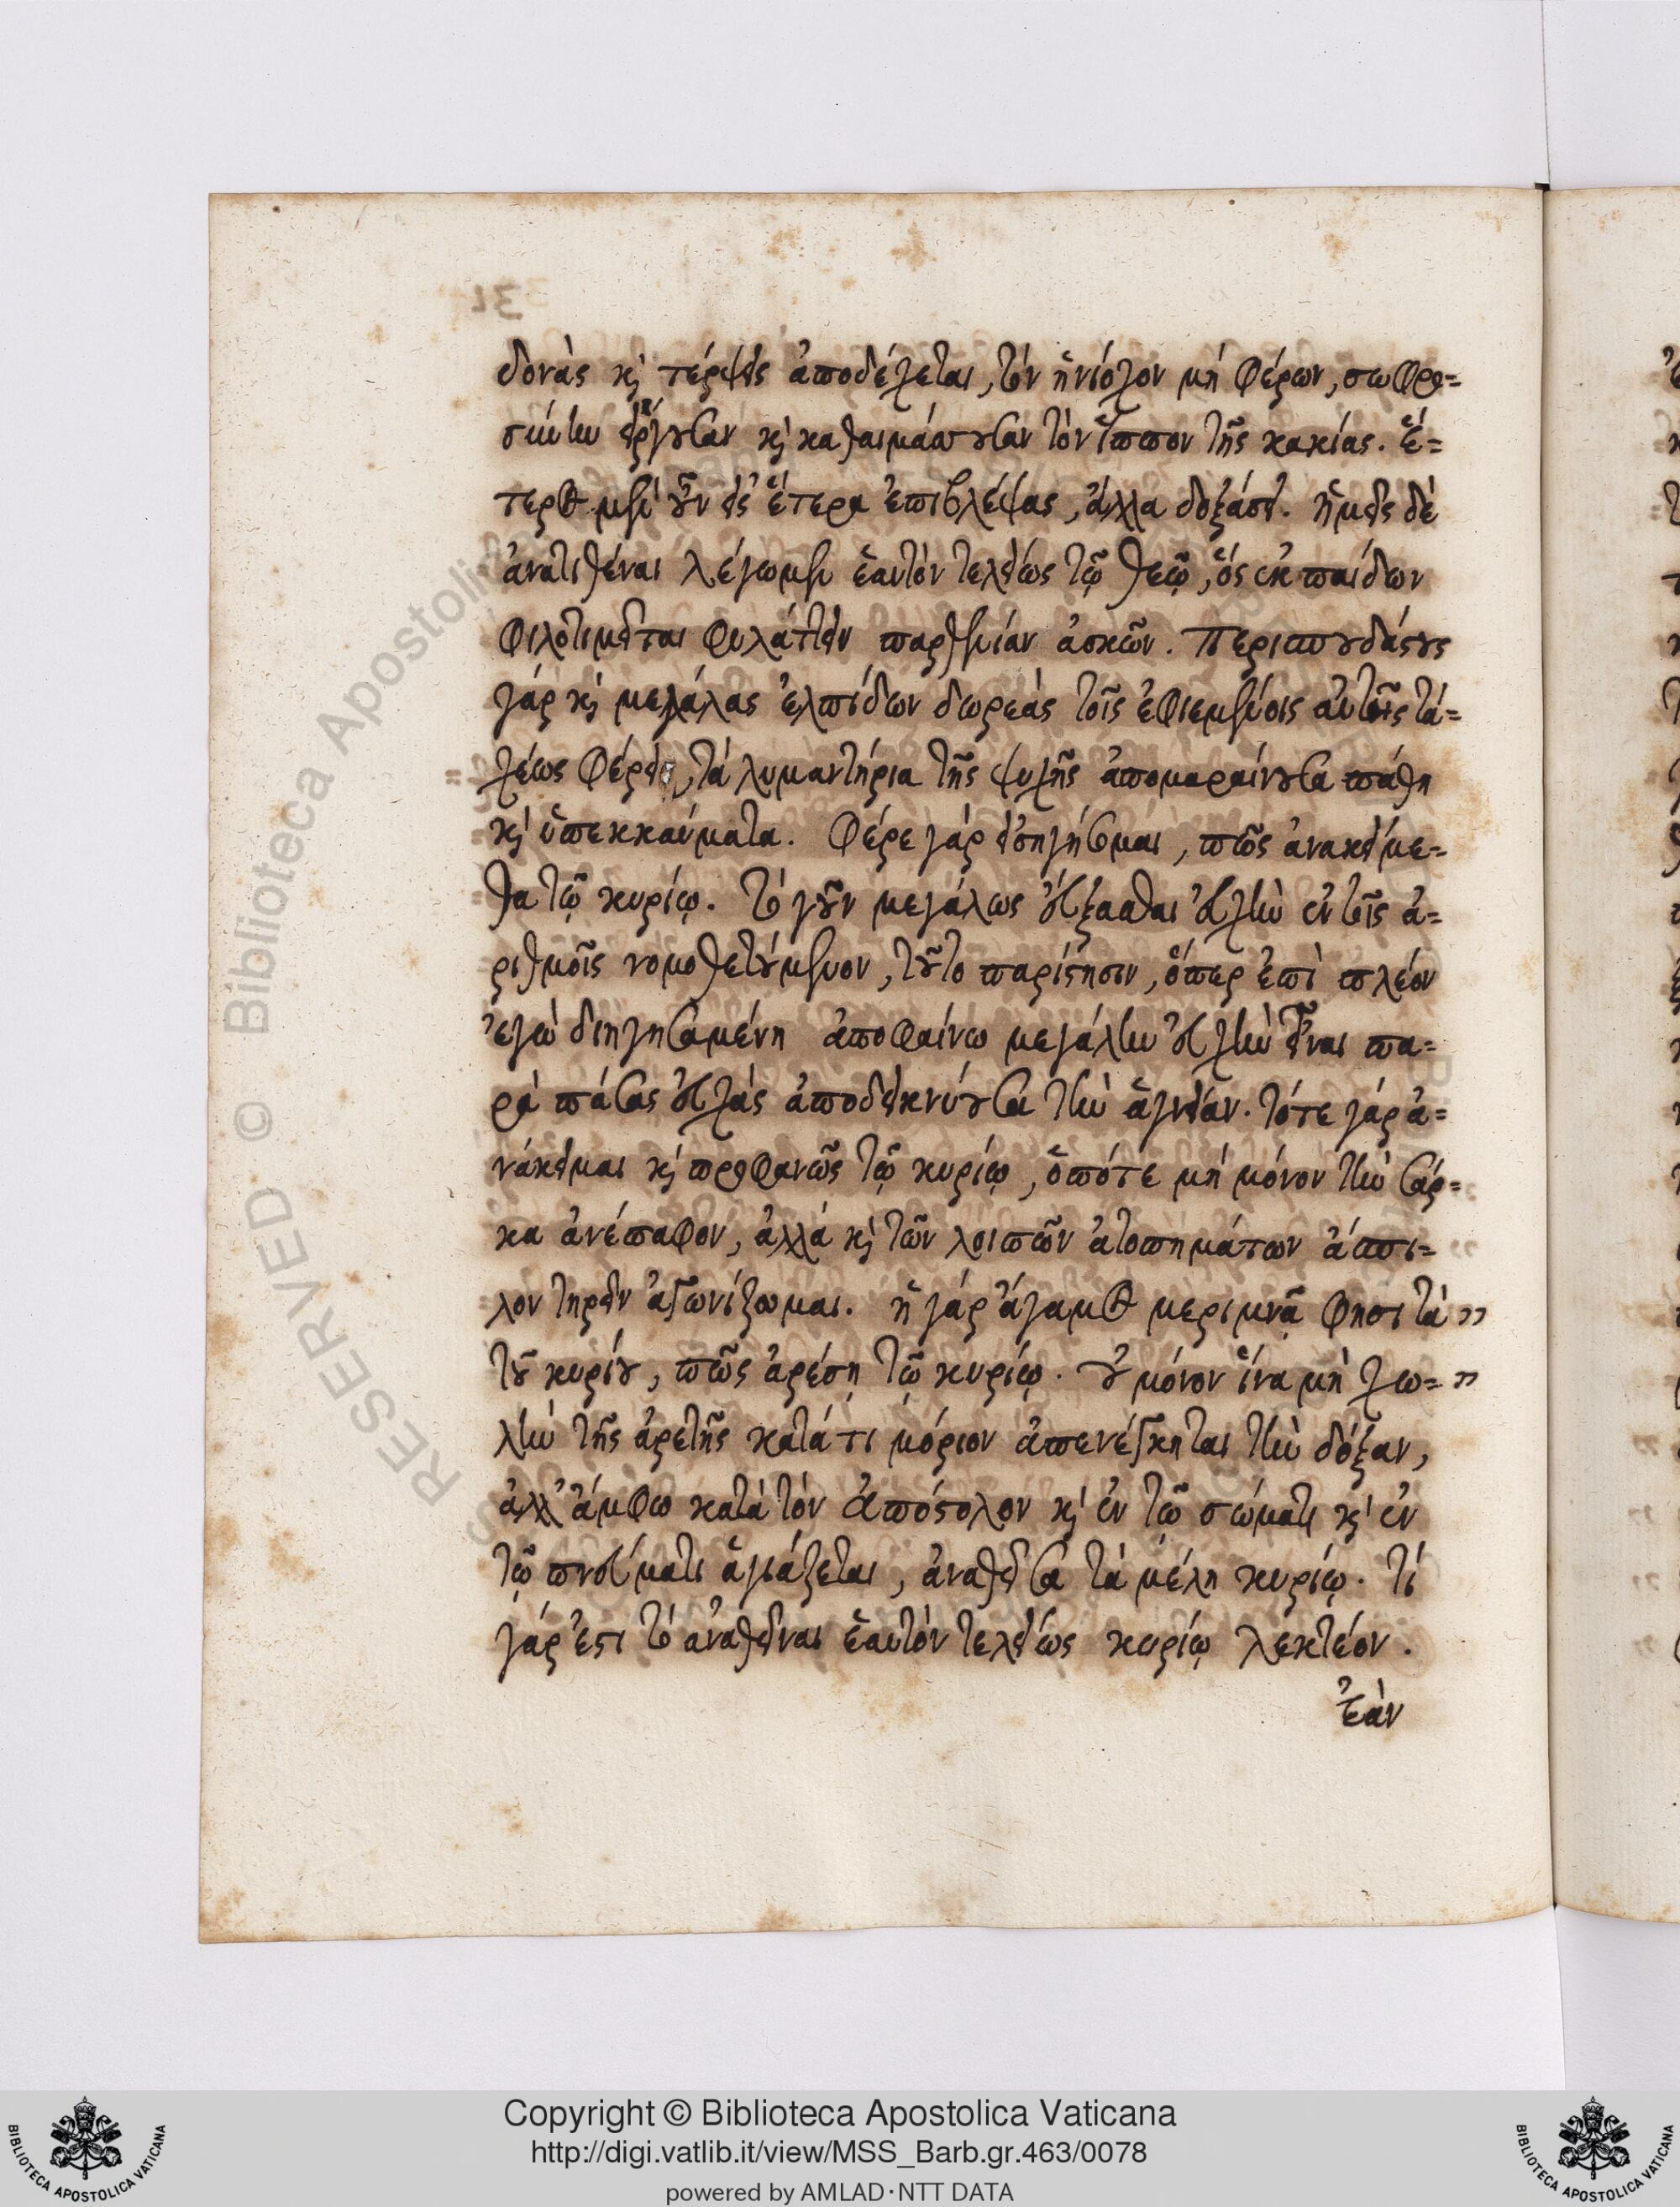 δονὰς κὶ τέρψεις ἀποδέχεται, τὸν ἡνίοχον μὴ φέρων, σωφρο=
σύνην εἴργουσαν κὶ καθαιμάσσουσαν τὸν ἵππον τῆς κακίας. ἕ=
τερος μὲν οὖν εἰς ἕτερα ἐπιβλέψας, ἄλλα δοξάσει. ἡμεῖς δὲ
ἀνατιθέναι λέγωμεν ἑαυτὸν τελείως τῷ θεῷ, ὃς ἐκ παίδων
φιλοτιμεῖται φυλάττειν παρθενίαν ἀσκῶν. περισπουδάστους
γάρ κὶ μεγάλας ἐλπίδων δωρεάς τοῖς ἐφιεμένοις αὐτῆς τά=
χέως φέρει, τὰ λυμαντήρια τῆς ψυχῆς ἀπομαραίνουσα πάθη
κὶ ὑπεκκαύματα. φέρε γάρ εἰσηγήσομαι, πῶς ἀνακείμε=
θα τῷ κυρίῳ. τὸ γοῦν μεγάλως εὔξασθαι εὐχὴν ἐν τοῖς ἀ=
ριθμοῖς νομοθετούμενον, τοῦτο παρίστησιν, ὅπερ ἐπὶ πλέον
ἐγὼ διηγησαμένη ἀποφαίνω μεγάλην εὐχὴν εἶναι πα=
ρὰ πάσας εὐχάς ἀποδεικνύουσα τὴν ἁγνείαν. τότε γάρ ἀ=
νάκειμαι κὶ προφανῶς τῷ κυρίῳ, ὁπότε μὴ μόνον τὴν σάρ=
κα ἀνέπαφον, ἀλλά κὶ τῶν λοιπῶν ἀτοπημάτων ἄσπι=
λον τηρεῖν ἀγωνίζωμαι. ἡ γάρ ἄγαμος μεριμνᾷ φησι τὰ ,,
τοῦ κυρίου, πῶς ἀρέσῃ τῷ κυρίῳ. οὐ μόνον ἵνα μὴ χω= ,,
λὴν τῆς ἀρετῆς κατά τι μόριον ἀπενέγκηται τὴν δόξαν,
ἀλλ᾽ ἄμφω κατὰ τὸν Ἀπόστολον κὶ ἐν τῷ σώματι κὶ ἐν
τῷ πνεύματι ἁγιάζεται, ἀναθεῖσα τὰ μέλη κυρίῳ. τί
γάρ ἐστι τὸ ἀναθεῖναι ἑαυτὸν τελείως κυρίῳ λεκτέον.
Ἐὰν
RESERVED © Biblioteca Apostolica
Copyright © Biblioteca Apostolica Vaticana
http://digi.vatlib.it/view/MSS_Barb.gr.463/0078
powered by AMLAD·NTT DATA
BIBLIOTECA APOSTOLICA VATICANA
BIBLIOTECA APOSTOLICA VATICANA